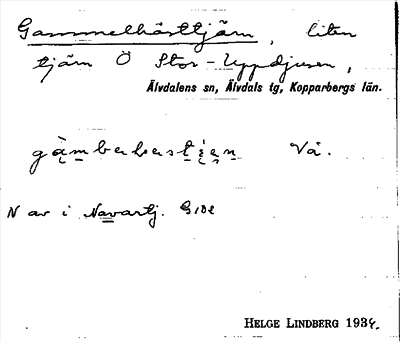 Gammelhästtjärn, liten
tjärn Ö Stor-Uppdjusen,
Älvdalens sn, Älvdals tg, Kopparbergs län.
Vå.
N av i Navartj.
HELGE LINDBERG 1934.